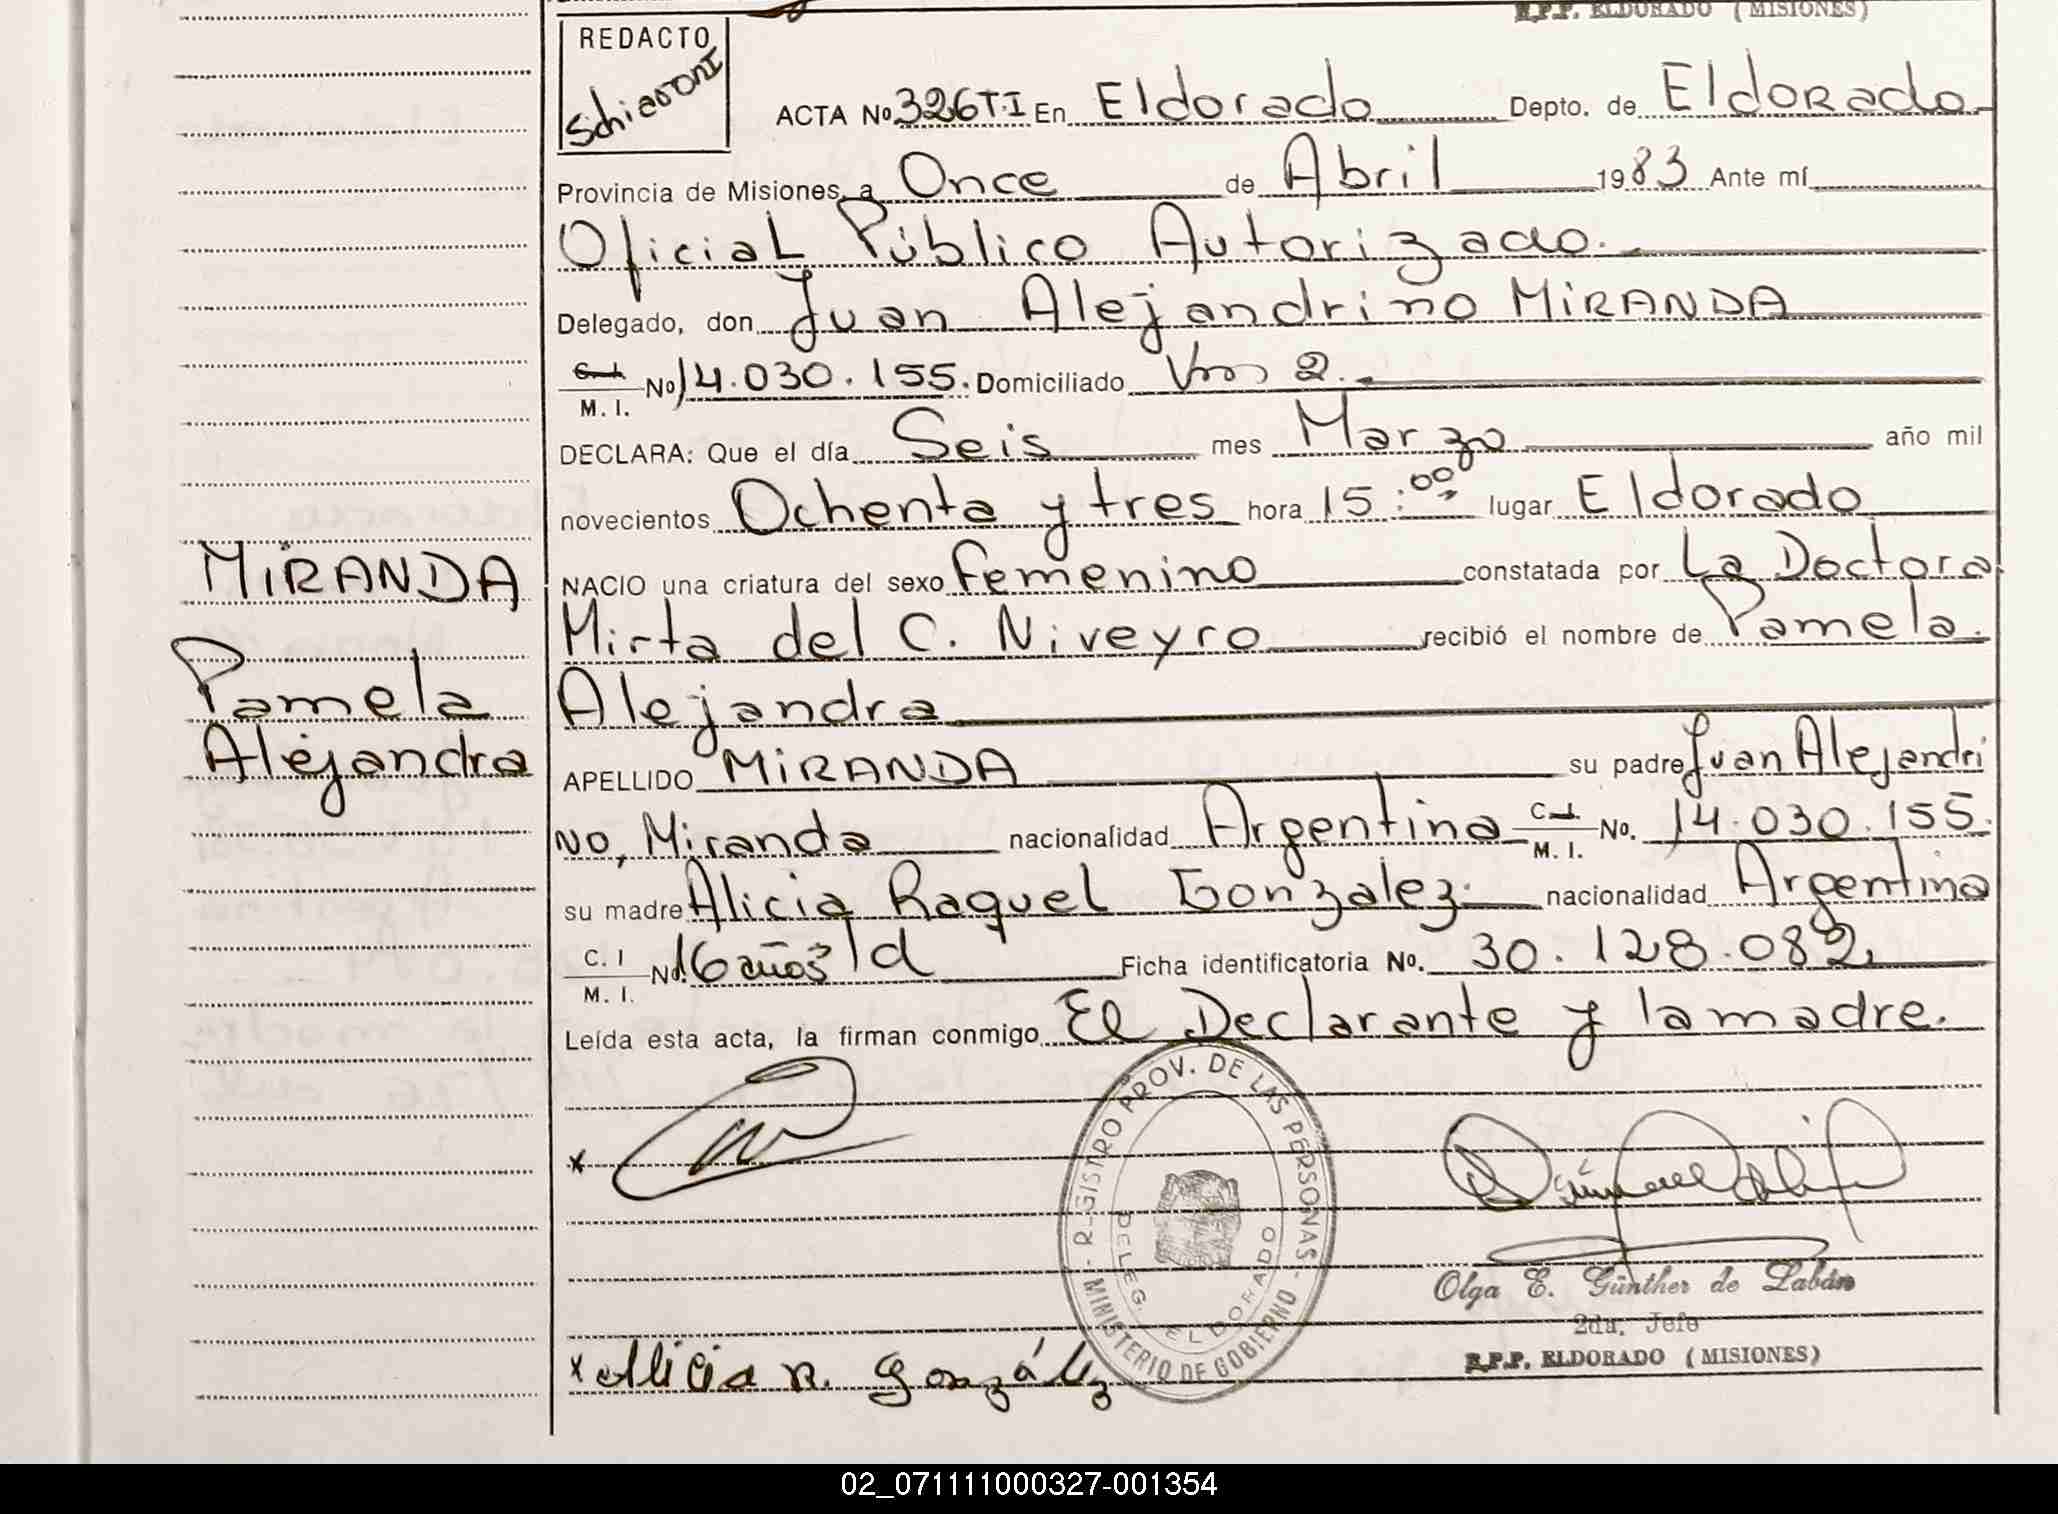 R.P.P. ELDORADO (MISIONES)
REDACTO
Schiavoni
ACTA No 326 T.I En Eldorado Depto. de Eldorado
Provincia de Misiones, a Once de Abril 1983 Ante mí
Oficial Público Autorizado.
Delegado, don Juan Alejandrino MIRANDA
C.I. M. I. No 14.030.155. Domiciliado Km 2.
DECLARA: Que el día Seis mes Marzo año mil
novecientos Ochenta y tres hora 15:00 lugar Eldorado
NACIO una criatura del sexo femenino constatada por La Doctora
Mirta del C. Niveyro recibió el nombre de Pamela
Alejandra
APELLIDO MIRANDA su padre Juan Alejandri
no, Miranda nacionalidad Argentina C.I. M. I. No. 14.030.155.
su madre Alicia Raquel Gonzalez nacionalidad Argentina
C. I M. I. No. 16 años Id Ficha identificatoria No. 30.128.082
Leída esta acta, la firman conmigo El Declarante y la madre.
MIRANDA
Pamela
Alejandra
x
REGISTRO PROV. DE LAS PERSONAS - MINISTERIO DE GOBIERNO -
DELEG. ELDORADO
Olga E. Günther de Labán
2da. Jefe
R.P.P. ELDORADO (MISIONES)
x Alicia R. González
02_071111000327-001354